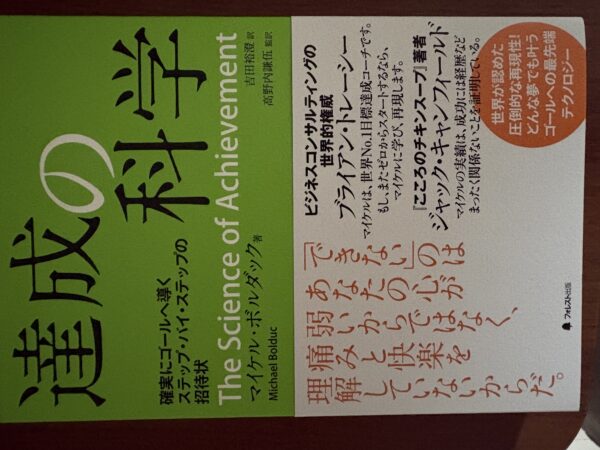 達成の科学
確実にゴールへ導く
ステップ・バイ・ステップの
招待状
The Science of Achievement
マイケル・ボルダック 著
Michael Bolduc
吉田裕澄 訳
高野内謙伍 監訳
ビジネスコンサルティングの
世界的権威
ブライアン・トレーシー
マイケルは、世界No.1目標達成コーチです。
もし、またゼロからスタートするなら、
マイケルに学び、再現します。
『こころのチキンスープ』著者
ジャック・キャンフィールド
マイケルの実績は、成功には経歴など
まったく関係ないことを証明している。
世界が認めた
圧倒的な再現性!
どんな夢でも叶う
ゴールへの最先端
テクノロジー
「できない」のは
あなたの心が
弱いからではなく、
痛みと快楽を
理解していないからだ。
フォレスト出版